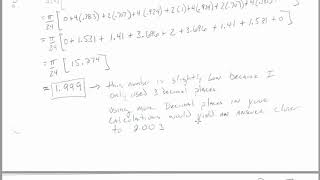 = π/24 [0+4(.383)+2(.707)+4(.924)+2(1)+4(.924)+2(.707)+4(.383)
= π/24 [0 + 1.531 + 1.41 + 3.696 + 2 + 3.696 + 1.41 + 1.531 + 0]
= π/24 [15.274]
= 1.999 → this number is slightly low because I
only used 3 decimal places
using more Decimal places in your
calculations would yield an answer closer
to 2.003